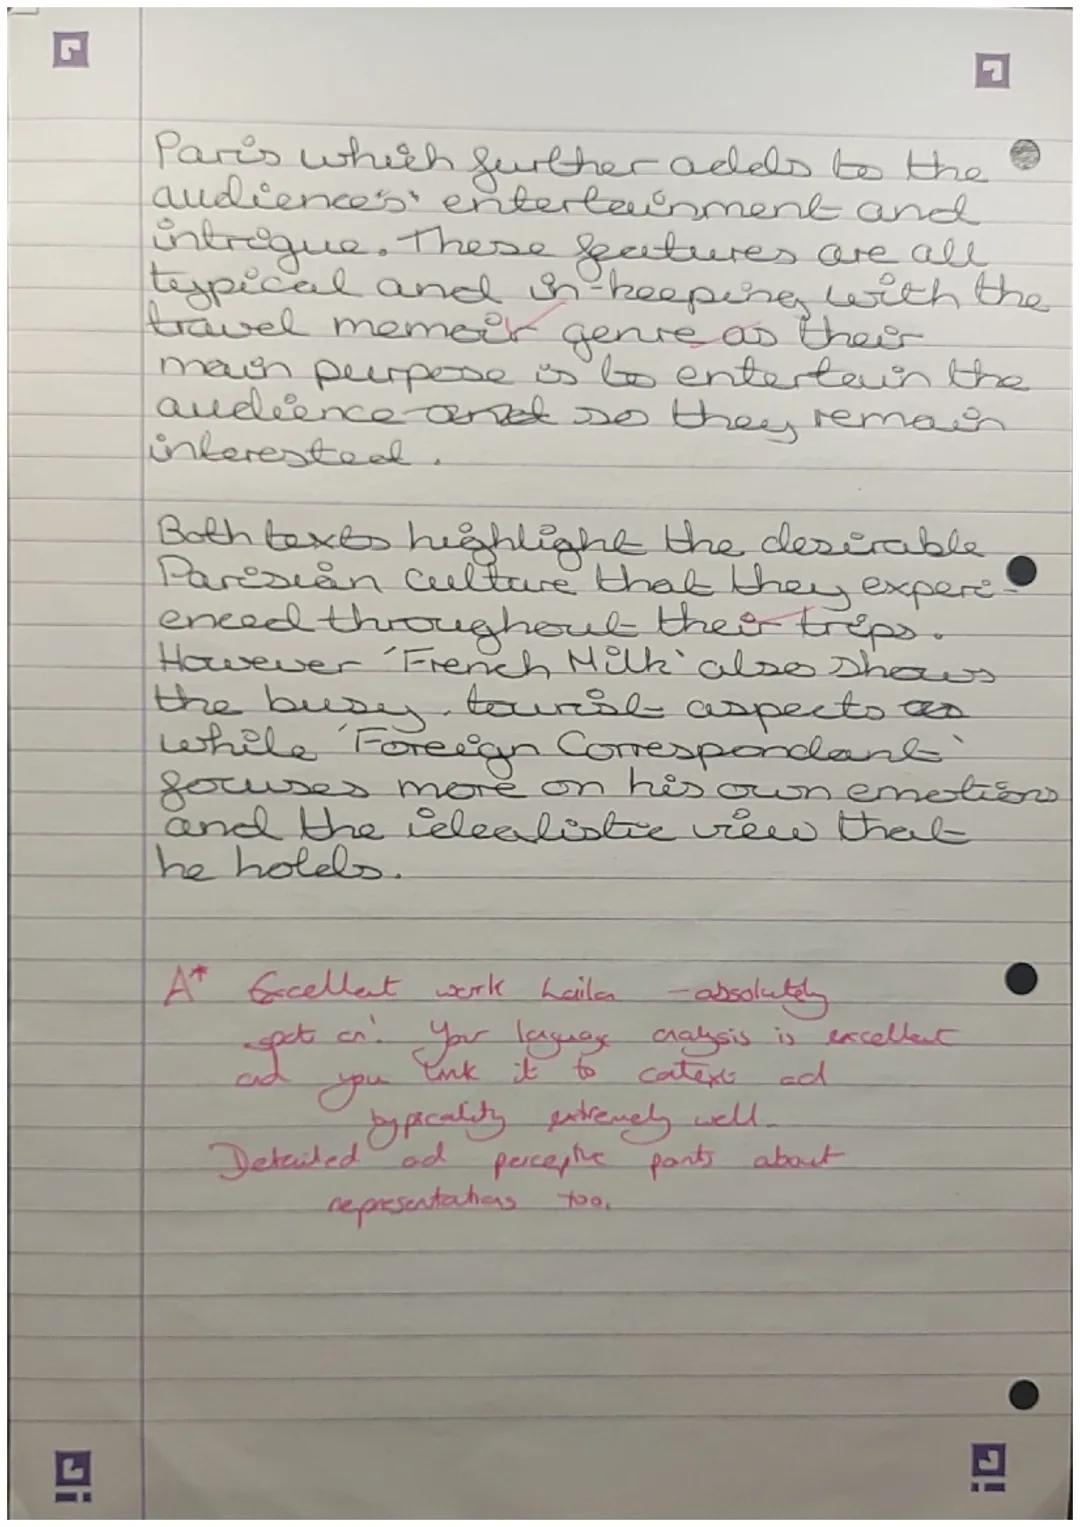 Paris which further adds to the
audiences' entertainment and
intrigue. These features are all
typical and in-keeping with the
travel memoir genre as their
main purpose is to entertain the
audience and so they remain
interested.
Both texts highlight the desirable
Parisian culture that they experi-
enced throughout their trips.
However 'French Milk' also shows
the busy, tourist aspects as
while 'Foreign Correspondant'
focuses more on his own emotions
and the idealistic view that
he holds.
A* Excellent work Laila - absolutely
spot on! Your language analysis is excellent
and you link it to context and
typicality extremely well.
Detailed and perceptive points about
representations too.